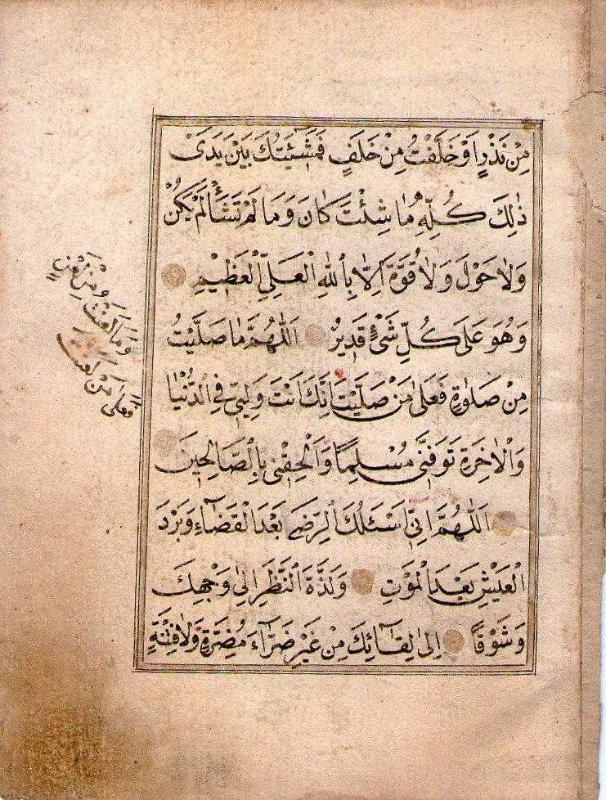 مِنْ نَذْرٍ اَوْ خَلَفْتُ مِنْ خَلَفٍ فَمَشِيَّتُكَ بَيْنَ يَدَىْ
ذٰلِكَ كُلِّهِ مَا شِئْتَ كَانَ وَمَا لَمْ تَشَأْ لَمْ يَكُنْ
وَلَا حَوْلَ وَلَا قُوَّةَ اِلَّا بِاللّٰهِ الْعَلِىِّ الْعَظِيْمِ
وَهُوَ عَلَى كُلِّ شَىْءٍ قَدِيْرٌ اَللّٰهُمَّ مَا صَلَّيْتُ
مِنْ صَلٰوةٍ فَعَلٰى مَنْ صَلَّيْتَ اِنَّكَ اَنْتَ وَلِيِّى فِى الدُّنْيَا
وَالْاٰخِرَةِ تَوَفَّنِى مُسْلِمًا وَاَلْحِقْنِى بِالصَّالِحِيْنَ
اَللّٰهُمَّ اِنِّى اَسْئَلُكَ الرِّضَى بَعْدَ الْقَضَاءِ وَبَرْدَ
الْعَيْشِ بَعْدَ الْمَوْتِ وَلَذَّةَ النَّظَرِ اِلٰى وَجْهِكَ
وَشَوْقًا اِلٰى لِقَائِكَ مِنْ غَيْرِ ضَرَّاءَ مُضِرَّةٍ وَلَا فِتْنَةٍ
وَمَا لَعَنْتُ مِنْ لَعْنٍ
فَعَلٰى مَنْ لَعَنْتَ